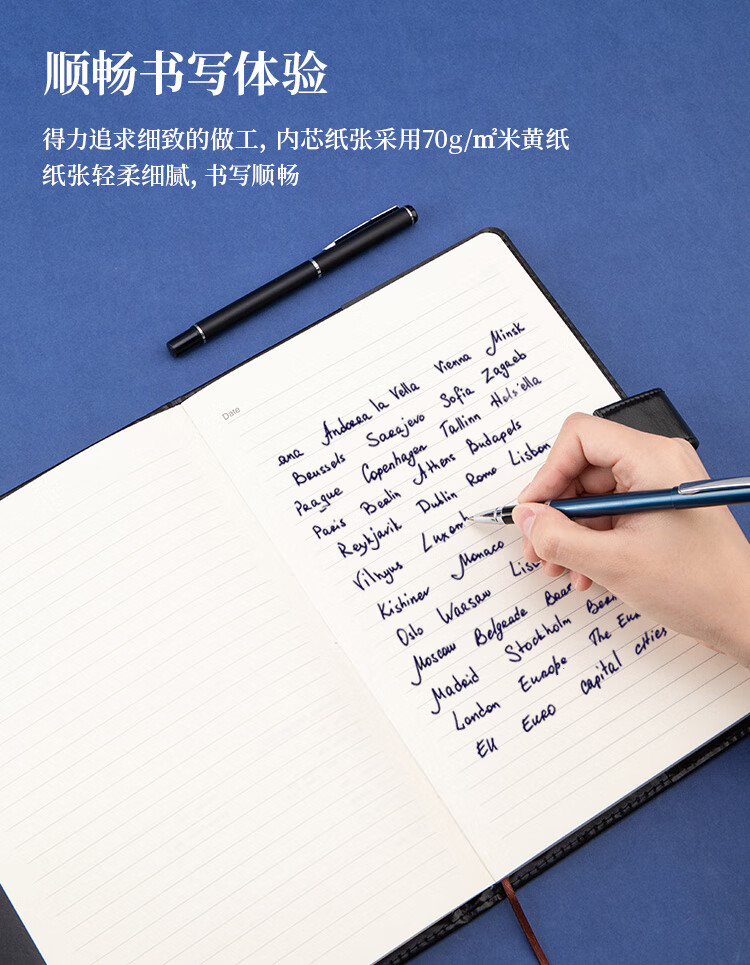 顺畅书写体验
得力追求细致的做工, 内芯纸张采用70g/㎡米黄纸
纸张轻柔细腻, 书写顺畅
Date
ana Andorra la Vella Vienna Minsk
Brussels Sarajevo Sofia Zagreb
Prague Copenhagen Tallinn Hels'ella
Paris Berlin Athens Budapels
Reykjavik Dublin Rome Lisbon
Vilnyus Luxemb
Kishinev Monaco
Oslo Warsaw
Moscow Belgrade
Madrid Stockholm Bern
London Europe The Eur
EU EURO capital cities